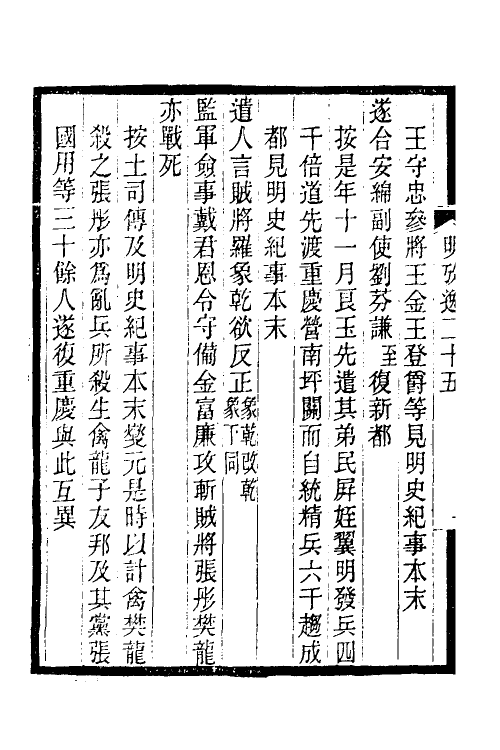 明攷逸二十五
王守忠參將王金王登爵等見明史紀事本末
遂合安綿副使劉芬謙至復新都
按是年十一月良玉先遣其弟民屛姪翼明發兵四
千倍道先渡重慶營南坪關而自統精兵六千趨成
都見明史紀事本末
遣人言賊將羅象乾欲反正象乾改乾象下同
監軍僉事戴君恩令守備金富廉攻斬賊將張彤樊龍
亦戰死
按土司傳及明史紀事本末燮元是時以計禽樊龍
殺之張彤亦爲亂兵所殺生禽龍子友邦及其黨張
國用等三十餘人遂復重慶與此互異